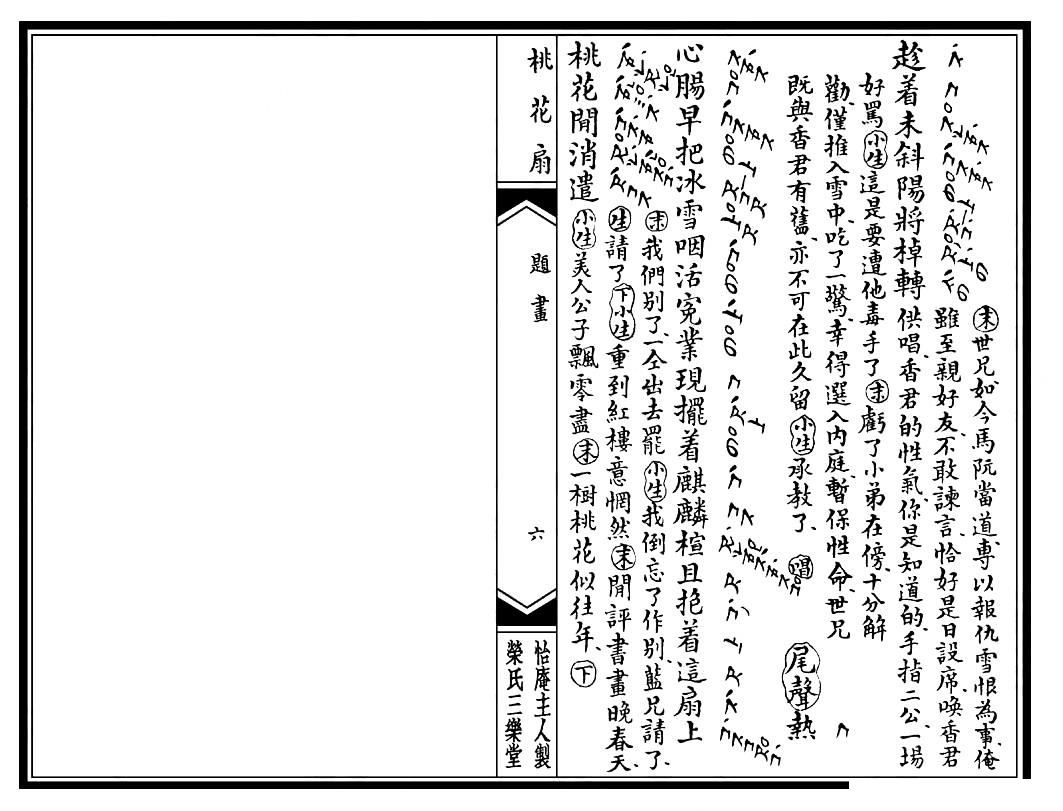 趁着未斜陽將棹轉
末世兄如今馬阮當道、專以報仇雪恨為事、俺
雖至親好友、不敢諫言、恰好是日設席、喚香君
供唱、香君的性氣、你是知道的、手指二公、一場
好罵小生這是要遭他毒手了末虧了小弟在傍、十分解
勸、僅推入雪中、吃了一驚、幸得選入內庭、暫保性命、世兄
既與香君有舊、亦不可在此久留小生承教了、唱尾聲熱
心腸早把冰雪咽活寃業現擺着麒麟楦且抱着這扇上
末我們別了、一仝出去罷小生我倒忘了作別、藍兄請了、
生請了下小生重到紅樓意惘然末閒評書畫晚春天、
桃花閒消遣小生美人公子飄零盡末一樹桃花似往年、下
桃花扇
題畫
六
怡庵主人製
榮氏三樂堂